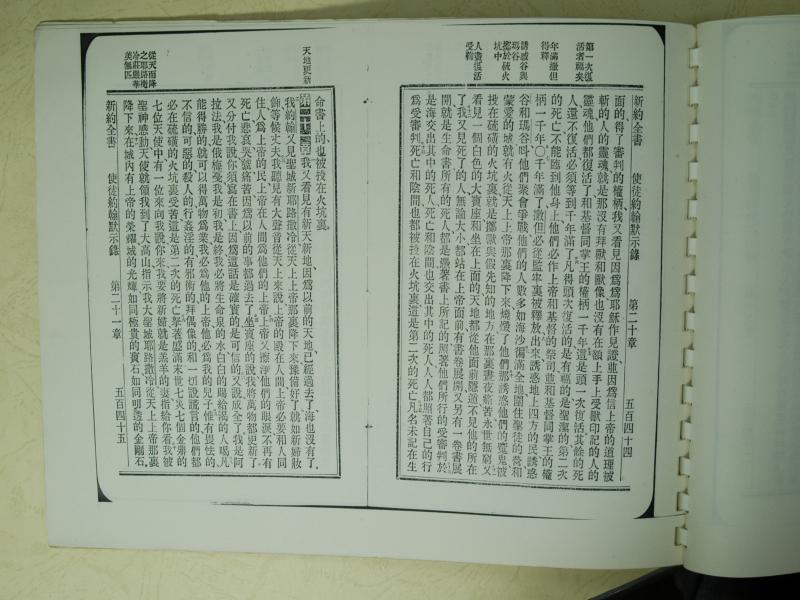 新約全書 使徒約翰默示錄 第二十章 五百四十四
第一次復
活者福矣
年滿撒但
得釋
誘惑谷與
瑪谷
擲於硫火
坑中
人盡復活
受鞫
面的得了審判的權柄我又看見因爲爲耶穌作見證並因爲信上帝的道理被
斬的人的靈魂就是那沒有拜獸和獸像也沒有在額上手上受獸印記的人的
靈魂他們都復活了和基督同掌王的權柄一千年這是頭一次復活其餘的死
人還不復活必須等到千年滿了凡得頭次復活的是有福的是聖潔的第二次
的死亡不能臨到他身上他們必作上帝和基督的祭司並和基督同掌王的權
柄一千年〇千年滿了撒但必從監牢裏被釋放出來誘惑地上四方的民誘惑
谷和瑪谷叫他們聚會爭戰他們的人數多如海沙徧滿全地圍住聖徒的營和
蒙愛的城就有火從天上上帝那裏降下來燒燬了他們那誘惑他們的魔鬼被
投在硫磺的火坑裏就是擲獸與假先知的地方在那裏晝夜痛苦永世無窮又
看見一個白色的大寶座和坐在上面的天地都從他面前隱遁不見他的所在
了我又見死了的人無論大小都站在上帝面前有書卷展開又另有一卷書展
開就是生命書所有的死人都是憑著書上所記的照著他們所行的受審判於
是海交出其中的死人死亡和陰間也交出其中的死人人人都照著自己的行
爲受審判死亡和陰間也都被投在火坑裏這是第二次的死亡凡名未記在生
天地更新
從天而降
之耶路撒
冷莊嚴華
美無匹
命書上的也被投在火坑裏
我又看見有新天新地因爲以前的天地已經過去了海也沒有了
我約翰又見聖城新耶路撒冷從天上上帝那裏降下來豫備好了就如新婦妝
飾等候丈夫我聽見有大聲音從天上來說上帝的殿在人間上帝必要和人同
住人爲上帝的民上帝在人間爲他們的上帝上帝又擦淨他們的眼淚不再有
死亡悲哀哭號痛苦因爲以前的事都過去了坐寶座的說我將萬物都更新了
又分付我說你須寫在書上因爲這話是確實的是可信的又說成全了我是阿
拉法我是俄梅戛我是初我是終我必將生命泉的水白白的賜給渴的人喝凡
能得勝的就可以得萬物爲業我必爲他的上帝他必爲我的兒子惟有畏怯的
不信的可惡的殺人的行姦淫的有邪術的拜偶像的和一切說謊言的他們都
必在硫磺的火坑裏受苦這是第二次的死亡拏著盛滿末世七災七個金鼎的
七位天使中有一位來向我說你來我要將新婦就是羔羊的妻指給你看我被
聖神感動天使就領我到了大高山指示我大聖城耶路撒冷從天上上帝那裏
降下來在城內有上帝的榮耀城的光輝如同極貴的寶石如同明透的金剛石
新約全書 使徒約翰默示錄 第二十一章 五百四十五